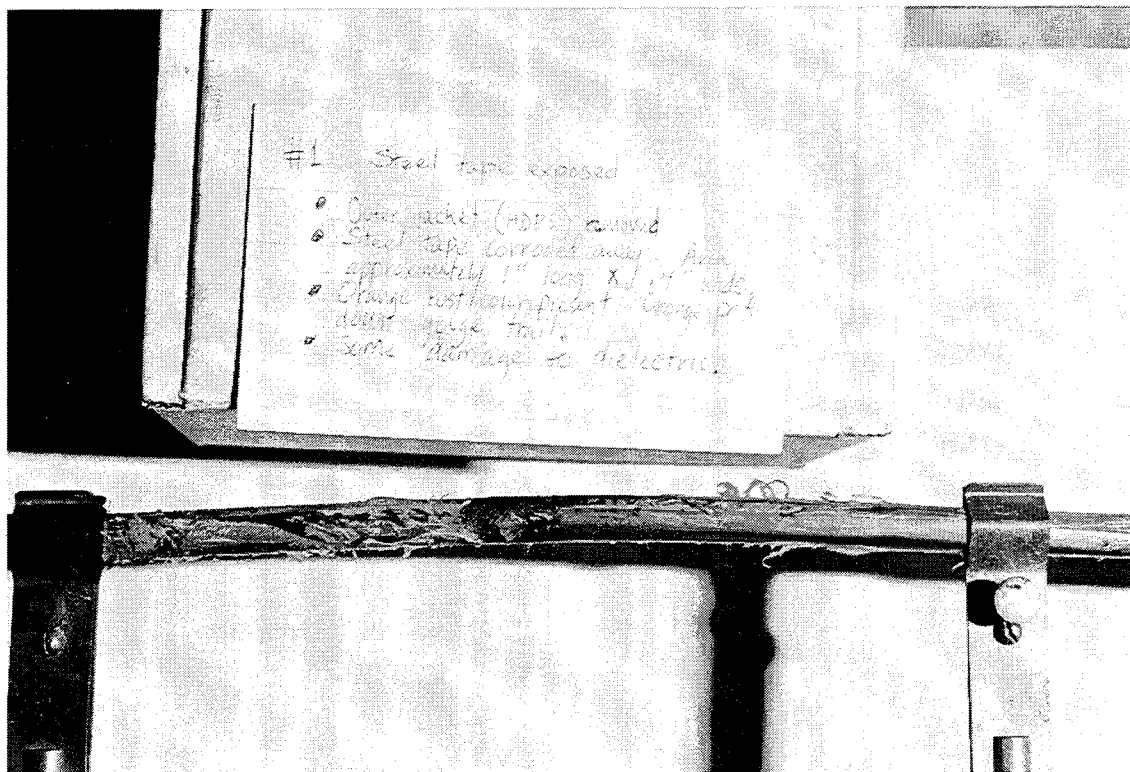 #1 Steel tape exposed
• Outer jacket (HDPE) removed
• Steel tape corroded away. Area
approximately 1" long x
• Orange rust
down gauge
• Some damage to dielectric.